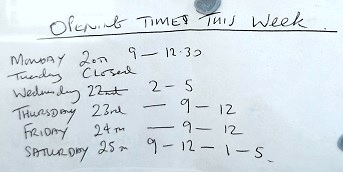 OPENING TIMES THIS Week.
MONDAY 20th 9 - 12.30
Tuesday Closed
Wednesday 22nd 2 - 5
THURSDAY 23rd - 9 - 12
FRIDAY 24th - 9 - 12
SATURDAY 25th 9 - 12 - 1 - 5.